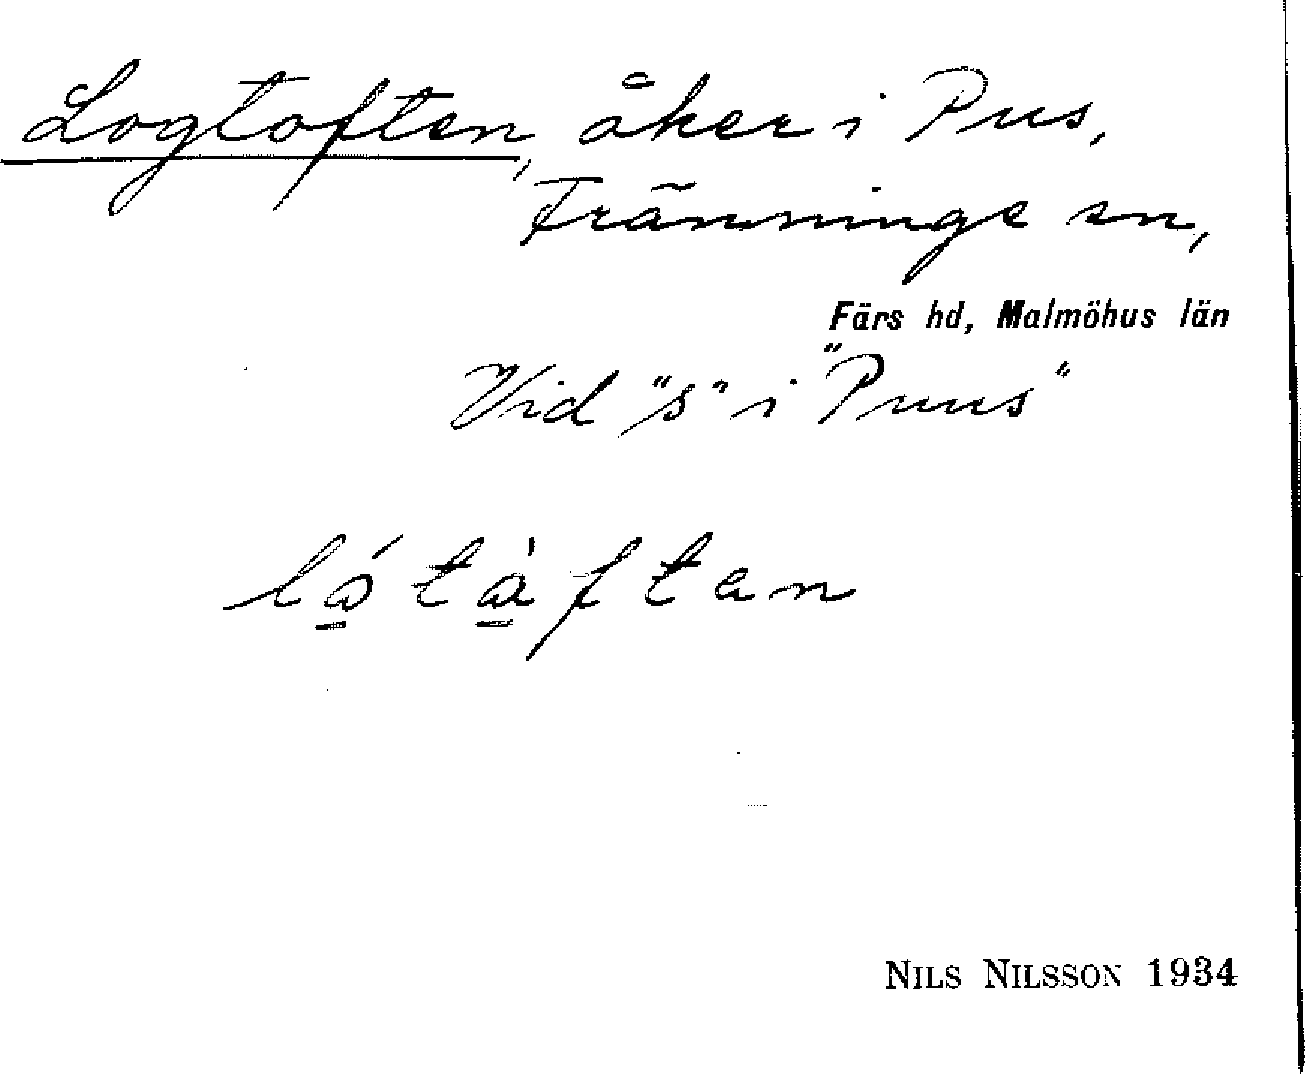 Logtoften, åker i Pus,
Tränninge sn,
Färs hd, Malmöhus län
Vid "s" i "Puus"
lótàften
NILS NILSSON 1934